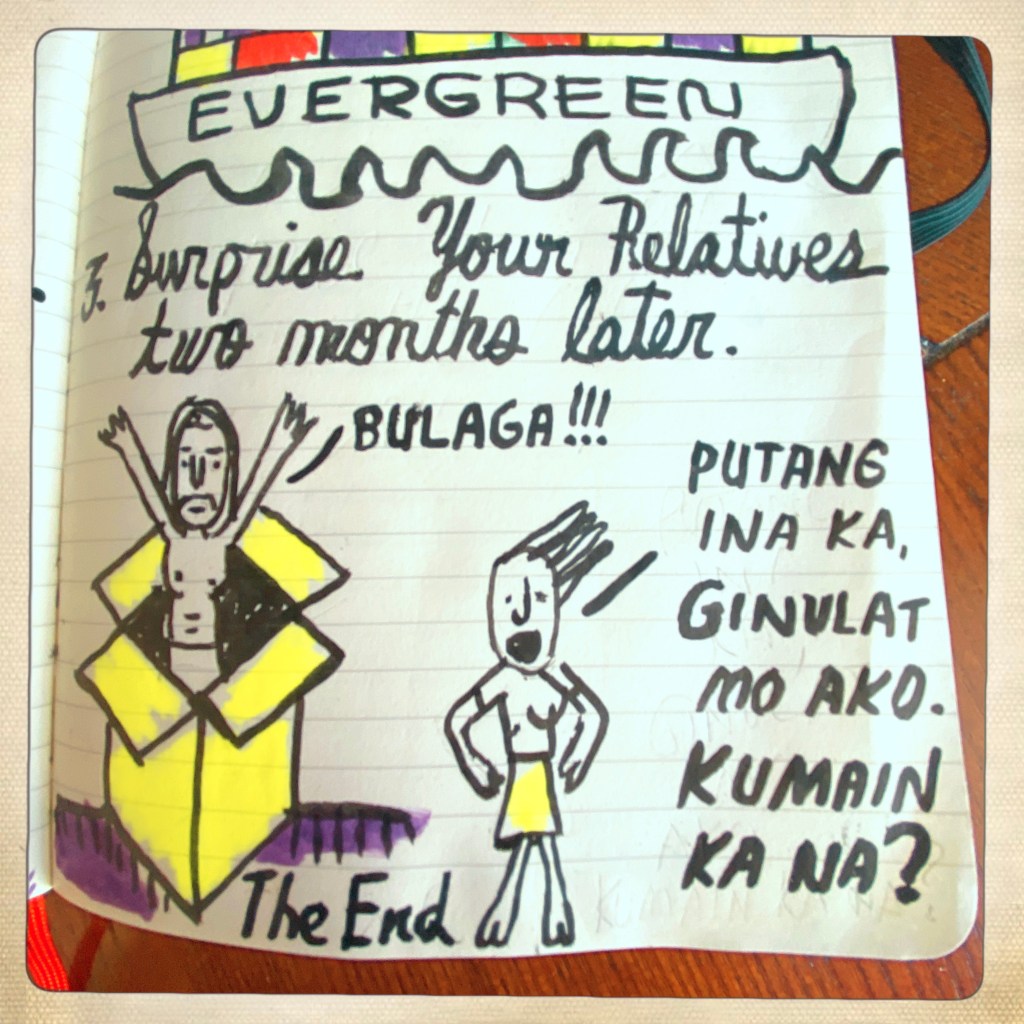 EVERGREEN
3. Surprise Your Relatives
two months later.
BULAGA!!!
PUTANG
INA KA,
GINULAT
MO AKO.
KUMAIN
KA NA?
The End